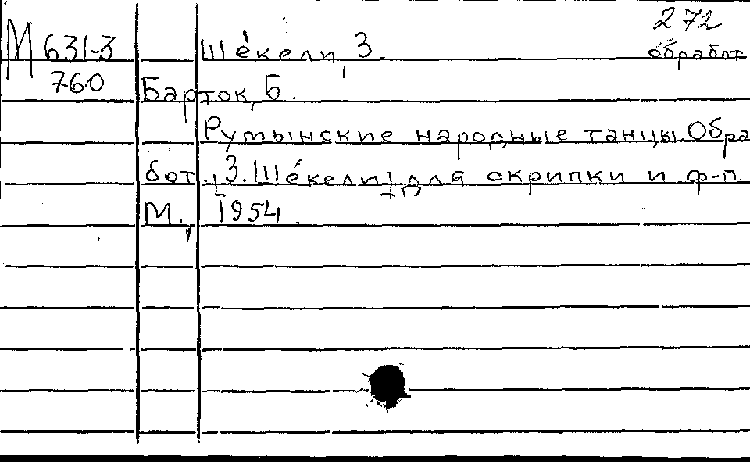 272
М 631-3 Шекели, З. обработ.
760 Барток, Б.
Румынские народные танцы. Обра
бот. З. Шекели для скрипки и ф-п.
М., 1954